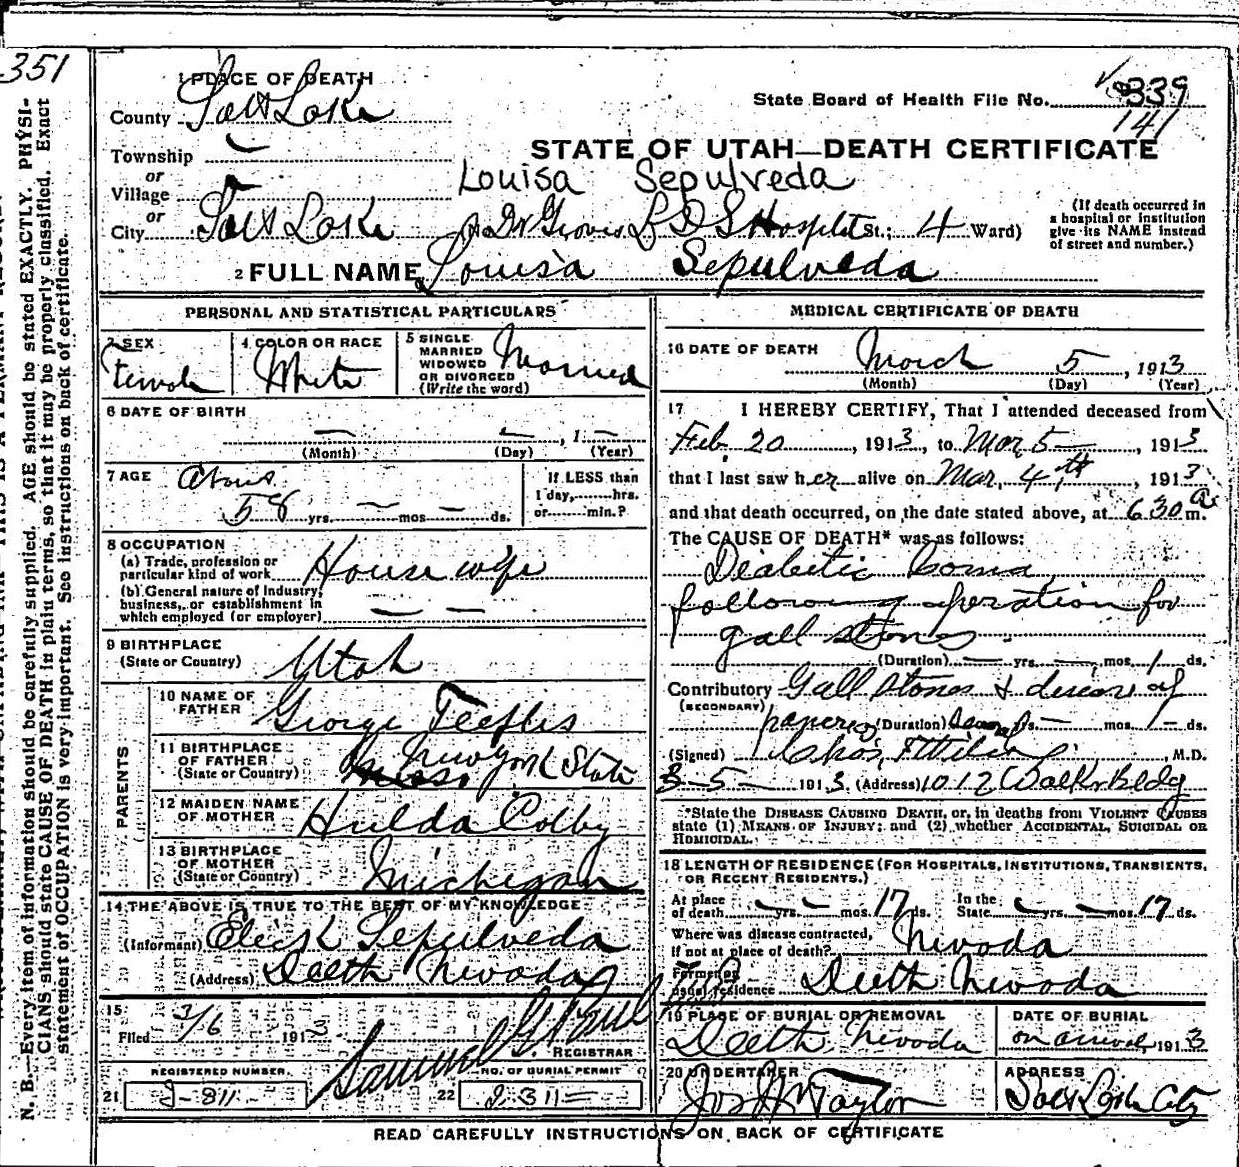 351
1 PLACE OF DEATH
County Salt Lake
State Board of Health File No. 339
141
Township
or
Village
or
STATE OF UTAH—DEATH CERTIFICATE
Louisa Sepulveda
City Salt Lake Dr Groves L D S Hospital St.; 4 Ward)
(If death occurred in a hospital or institution give its NAME instead of street and number.)
2 FULL NAME Louisa Sepulveda
PERSONAL AND STATISTICAL PARTICULARS
3 SEX Female
4 COLOR OR RACE White
5 SINGLE MARRIED WIDOWED OR DIVORCED (Write the word) Married
6 DATE OF BIRTH
— — , 1 —
(Month) (Day) (Year)
7 AGE About
58 yrs. — mos — ds.
If LESS than 1 day, hrs. or min.?
8 OCCUPATION
(a) Trade, profession or particular kind of work House wife
(b) General nature of Industry, business, or establishment in which employed (or employer) — —
9 BIRTHPLACE
(State or Country) Utah
PARENTS
10 NAME OF FATHER George Teeples
11 BIRTHPLACE OF FATHER (State or Country) New York State
12 MAIDEN NAME OF MOTHER Hulda Colby
13 BIRTHPLACE OF MOTHER (State or Country) Michigan
14 THE ABOVE IS TRUE TO THE BEST OF MY KNOWLEDGE
(Informant) Sepulveda
(Address) Deeth Nevada
15
Filed 3/6 1913 Samuel G. Paul
REGISTRAR
REGISTERED NUMBER.
21
NO. OF BURIAL PERMIT
22
MEDICAL CERTIFICATE OF DEATH
16 DATE OF DEATH March 5, 1913
(Month) (Day) (Year)
17 I HEREBY CERTIFY, That I attended deceased from
Feb 20, 1913, to Mar 5—, 1913
that I last saw her alive on Mar, 4th, 1913
and that death occurred, on the date stated above, at 6 30 a m.
The CAUSE OF DEATH* was as follows:
Diabetic Coma
following operation for
gall stones
(Duration) — yrs. —, mos. 1 ds.
Contributory Gall stones & disease of
(SECONDARY) pancreas (Duration) yrs — mos. — ds.
(Signed) Chas. M.D.
3-5- 1913. (Address) 1012 Walker Bldg
*State the DISEASE CAUSING DEATH, or, in deaths from VIOLENT CAUSES state (1) MEANS OF INJURY; and (2) whether ACCIDENTAL, SUICIDAL OR HOMICIDAL.
18 LENGTH OF RESIDENCE (FOR HOSPITALS, INSTITUTIONS, TRANSIENTS, OR RECENT RESIDENTS.)
At place of death — yrs. — mos. 17 ds. In the State — yrs. — mos. 17 ds.
Where was disease contracted, if not at place of death? Nevada
Former or usual residence Deeth Nevada
19 PLACE OF BURIAL OR REMOVAL Deeth, Nevada
DATE OF BURIAL on arrival, 1913
20 UNDERTAKER Jos Wm Taylor
ADDRESS Salt Lake City
READ CAREFULLY INSTRUCTIONS ON BACK OF CERTIFICATE
N. B.—Every item of information should be carefully supplied. AGE should be stated EXACTLY. PHYSI-
CIANS should state CAUSE OF DEATH in plain terms, so that it may be properly classified. Exact
statement of OCCUPATION is very important. See instructions on back of certificate.